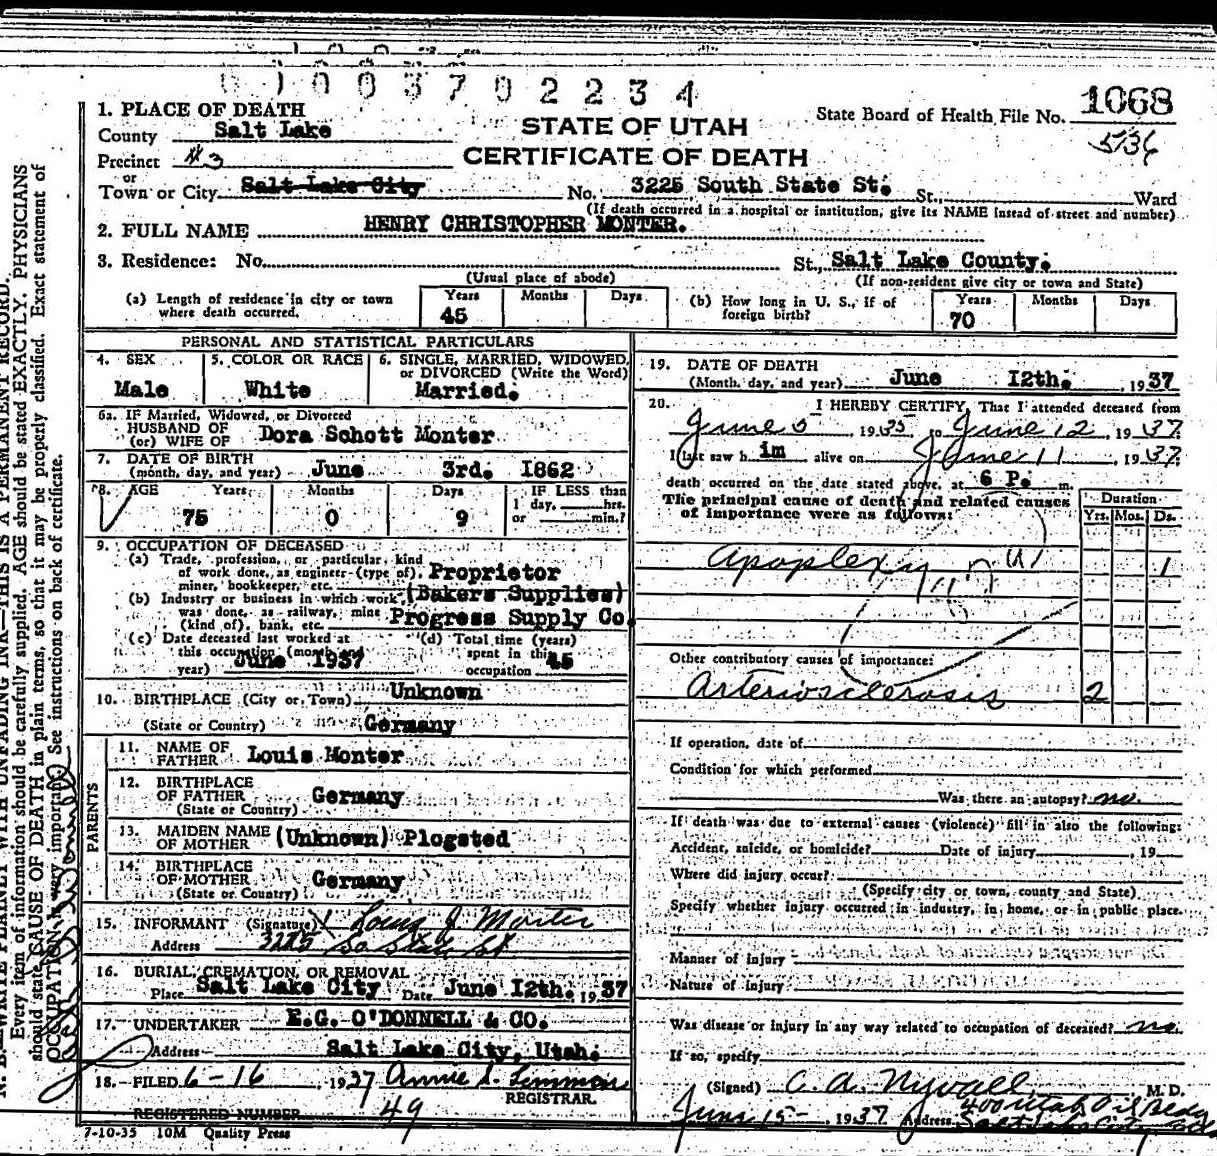 1003702234
1. PLACE OF DEATH
State Board of Health File No. 1068
County Salt Lake
STATE OF UTAH
5136
Precinct #3
CERTIFICATE OF DEATH
or
Town or City Salt Lake City No. 3225 South State St. St., Ward
(If death occurred in a hospital or institution, give its NAME instead of street and number)
2. FULL NAME HENRY CHRISTOPHER MONTER.
3. Residence: No. St., Salt Lake County.
(Usual place of abode) (If non-resident give city or town and State)
(a) Length of residence in city or town where death occurred. Years 45 Months Days
(b) How long in U. S., if of foreign birth? Years 70 Months Days
PERSONAL AND STATISTICAL PARTICULARS
4. SEX Male
5. COLOR OR RACE White
6. SINGLE, MARRIED, WIDOWED, or DIVORCED (Write the Word) Married.
6a. IF Married, Widowed, or Divorced
HUSBAND OF
(or) WIFE OF Dora Schott Monter
7. DATE OF BIRTH
(month, day, and year) June 3rd. 1862
8. AGE Years 75 Months 0 Days 9 IF LESS than 1 day, hrs. or min.?
9. OCCUPATION OF DECEASED
(a) Trade, profession, or particular kind
of work done, as engineer (type of), Proprietor
miner, bookkeeper, etc. (Bakers Supplies)
(b) Industry or business in which work
was done, as railway, mine Progress Supply Co.
(kind of), bank, etc.
(c) Date deceased last worked at
this occupation (month and
year) June 1937
(d) Total time (years)
spent in this
occupation 45
10. BIRTHPLACE (City or Town) Unknown
(State or Country) Germany
PARENTS
11. NAME OF
FATHER Louis Monter
12. BIRTHPLACE
OF FATHER Germany
(State or Country)
13. MAIDEN NAME
OF MOTHER (Unknown) Plogsted
14. BIRTHPLACE
OF MOTHER Germany
(State or Country)
15. INFORMANT (Signature) X Louis J Monter
Address 3225 So State St
16. BURIAL, CREMATION, OR REMOVAL
Place Salt Lake City Date June 12th. 1937
17. UNDERTAKER E.G. O'DONNELL & CO.
Address Salt Lake City, Utah.
18. FILED 6-16, 1937 Annie S. Timmons
REGISTRAR.
REGISTERED NUMBER 49
7-10-35 10M Quality Press
19. DATE OF DEATH
(Month, day, and year) June 12th. 1937
20. I HEREBY CERTIFY, That I attended deceased from
June 5 1935 to June 12, 1937
I last saw him alive on June 11, 1937
death occurred on the date stated above, at 6 P. m.
The principal cause of death and related causes
of importance were as follows:
Duration
Yrs. Mos. Ds.
Apoplexy 1
Other contributory causes of importance:
Arteriosclerosis 2
If operation, date of
Condition for which performed
Was there an autopsy? no.
If death was due to external causes (violence) fill in also the following:
Accident, suicide, or homicide? Date of injury , 19
Where did injury occur?
(Specify city or town, county and State)
Specify whether injury occurred in industry, in home, or in public place.
Manner of injury
Nature of injury
Was disease or injury in any way related to occupation of deceased? no.
If so, specify
(Signed) C. A. Nyvall M. D.
June 15 1937 Address 400 Utah Oil Bldg
Salt Lake City
N. B.—WRITE PLAINLY WITH UNFADING INK—THIS IS A PERMANENT RECORD.
Every item of information should be carefully supplied. AGE should be stated EXACTLY. PHYSICIANS
should state CAUSE OF DEATH in plain terms, so that it may be properly classified. Exact statement of
OCCUPATION is very important. See instructions on back of certificate.